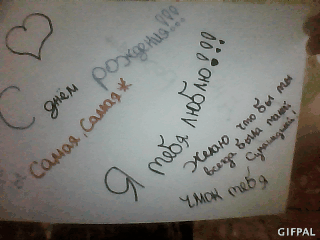 С днём рождения!!!
Самая, самая*
Я тебя люблю!!!
что бы ты
всегда была такой
Чмок тебя
GIFPAL